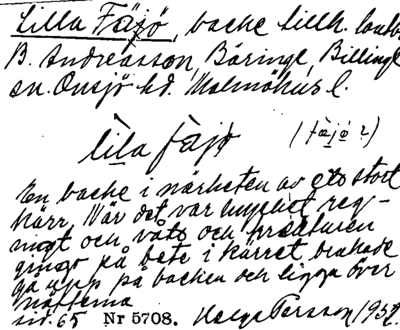 Lilla Fäjö, backe tillh. lantb.
B. Andreasson, Böringe, Billinge
sn. Onsjö hd. Malmöhus l.
lila fäjö (fäjö?)
En backe i närheten av ett stort
kärr. När det var mycket reg-
nigt och vått och kreaturen
gingo på bete i kärret brukade
gå upp på backen och ligga över
nätterna
sid. 65 Nr 5708. Helga Persson 1932